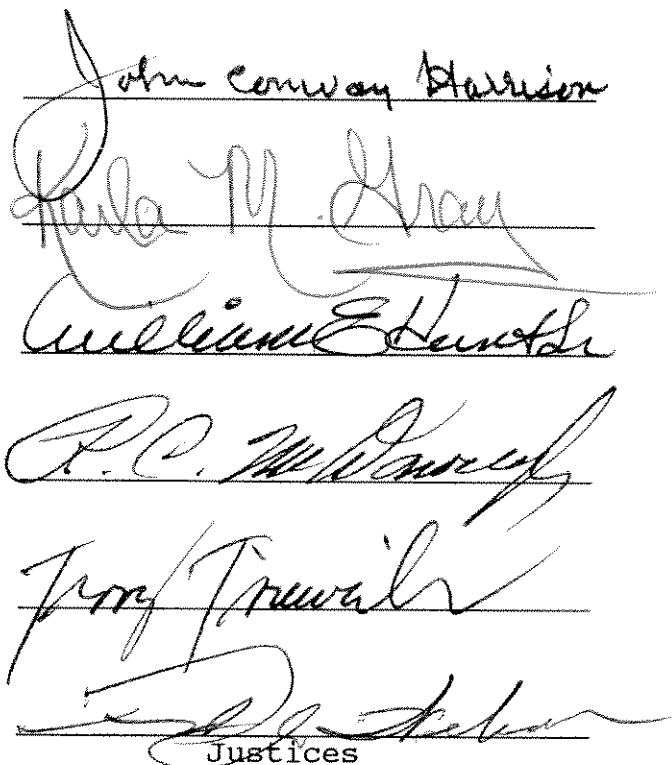 John Conway Harrison
Karla M. Gray
William E Hunt Sr
R. C. McDonough
Terry Trieweiler
Justices